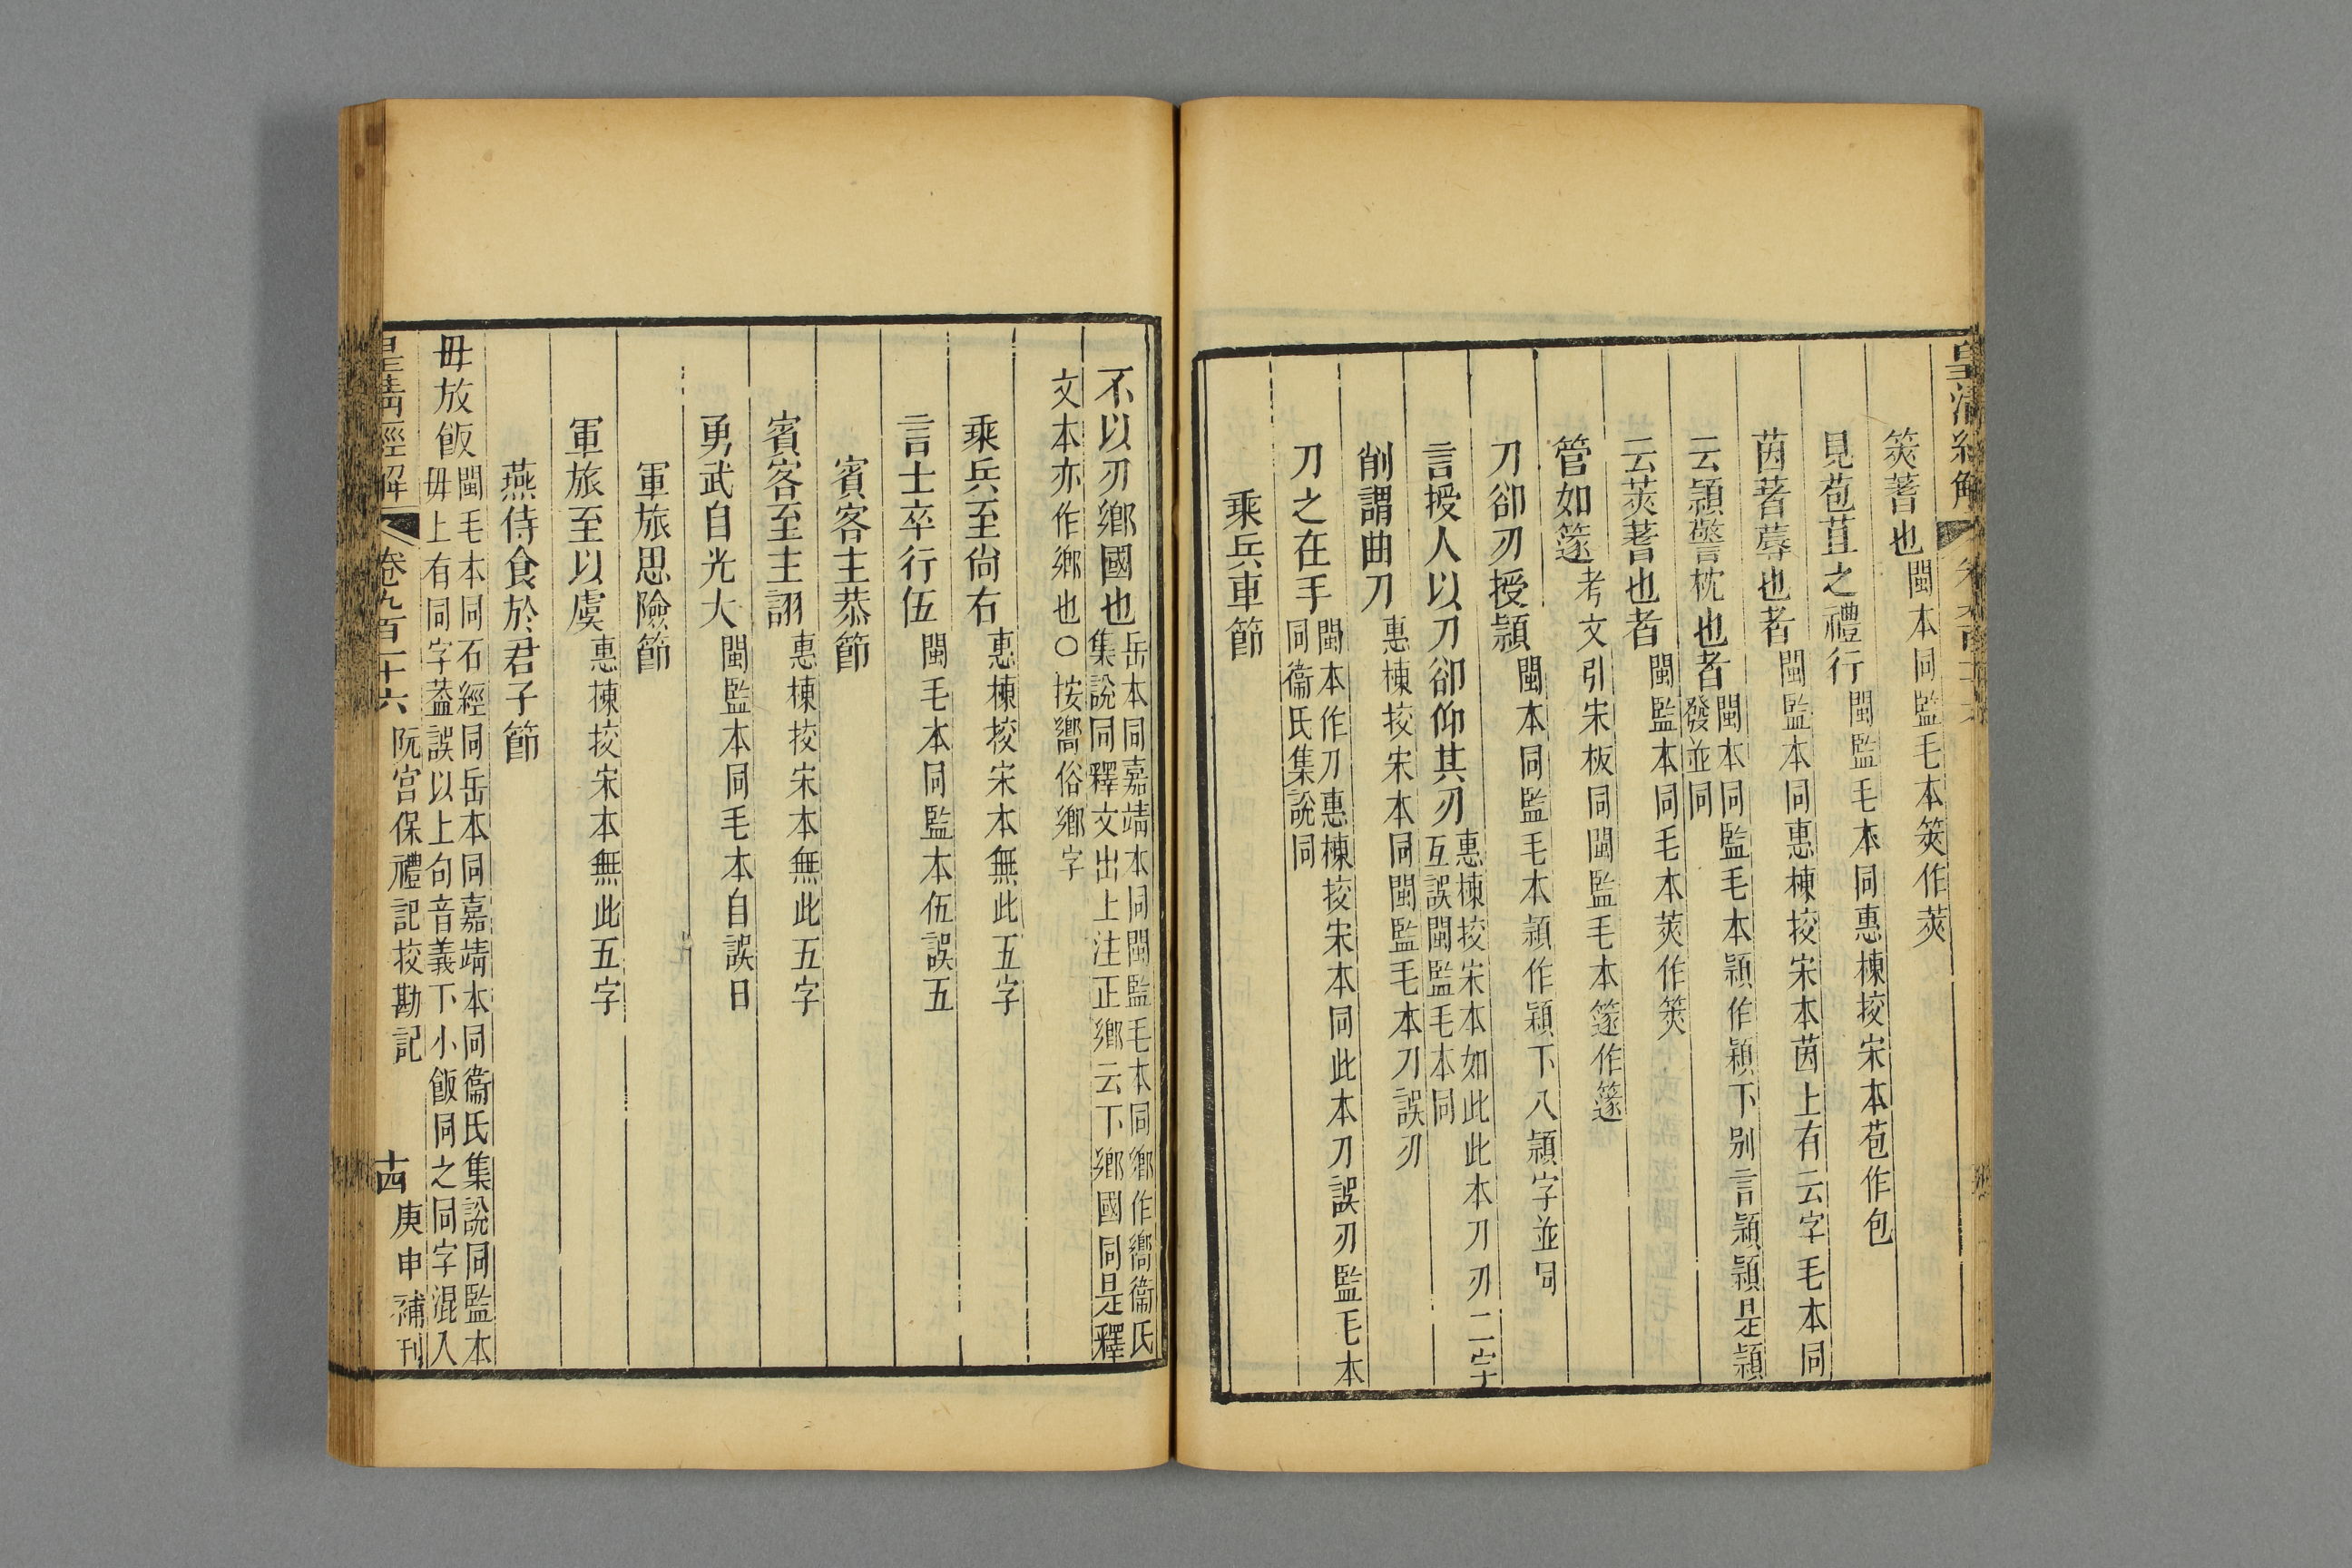 皇清經解
筴蓍也閩本同監毛本筴作莢
見苞苴之禮行閩監毛本同惠棟挍宋本苞作包
茵著蓐也者閩監本同惠棟挍宋本茵上有云字毛本同
云熲警枕也者閩本同監毛本熲作穎下别言熲熲是熲
發並同
云莢蓍也者閩監本同毛本莢作筴
管如篴考文引宋板同閩監毛本篴作篴
刀卻刃授熲閩本同監毛本熲作穎下八熲字並同
言授人以刀卻仰其刃惠棟挍宋本如此此本刀刃二字
互誤閩監毛本同
削謂曲刀惠棟挍宋本同閩監毛本刀誤刃
刀之在手閩本作刀惠棟挍宋本同此本刀誤刃監毛本
同衞氏集說同
乘兵車節
不以刃鄉國也岳本同嘉靖本同閩監毛本同鄉作嚮衞氏
集說同釋文出上注正鄉云下鄉國同是釋
文本亦作鄉也○按嚮俗鄉字
乘兵至尙右惠棟挍宋本無此五字
言士卒行伍閩毛本同監本伍誤五
賓客主恭節
賓客至主詡惠棟挍宋本無此五字
勇武自光大閩監本同毛本自誤日
軍旅思險節
軍旅至以虞惠棟挍宋本無此五字
燕侍食於君子節
毋放飯閩毛本同石經同岳本同嘉靖本同衞氏集說同監本
毋上有同字葢誤以上句音義下小飯同之同字混入
皇清經解 卷九百二十六 阮宮保禮記挍勘記 十四 庚申補刊